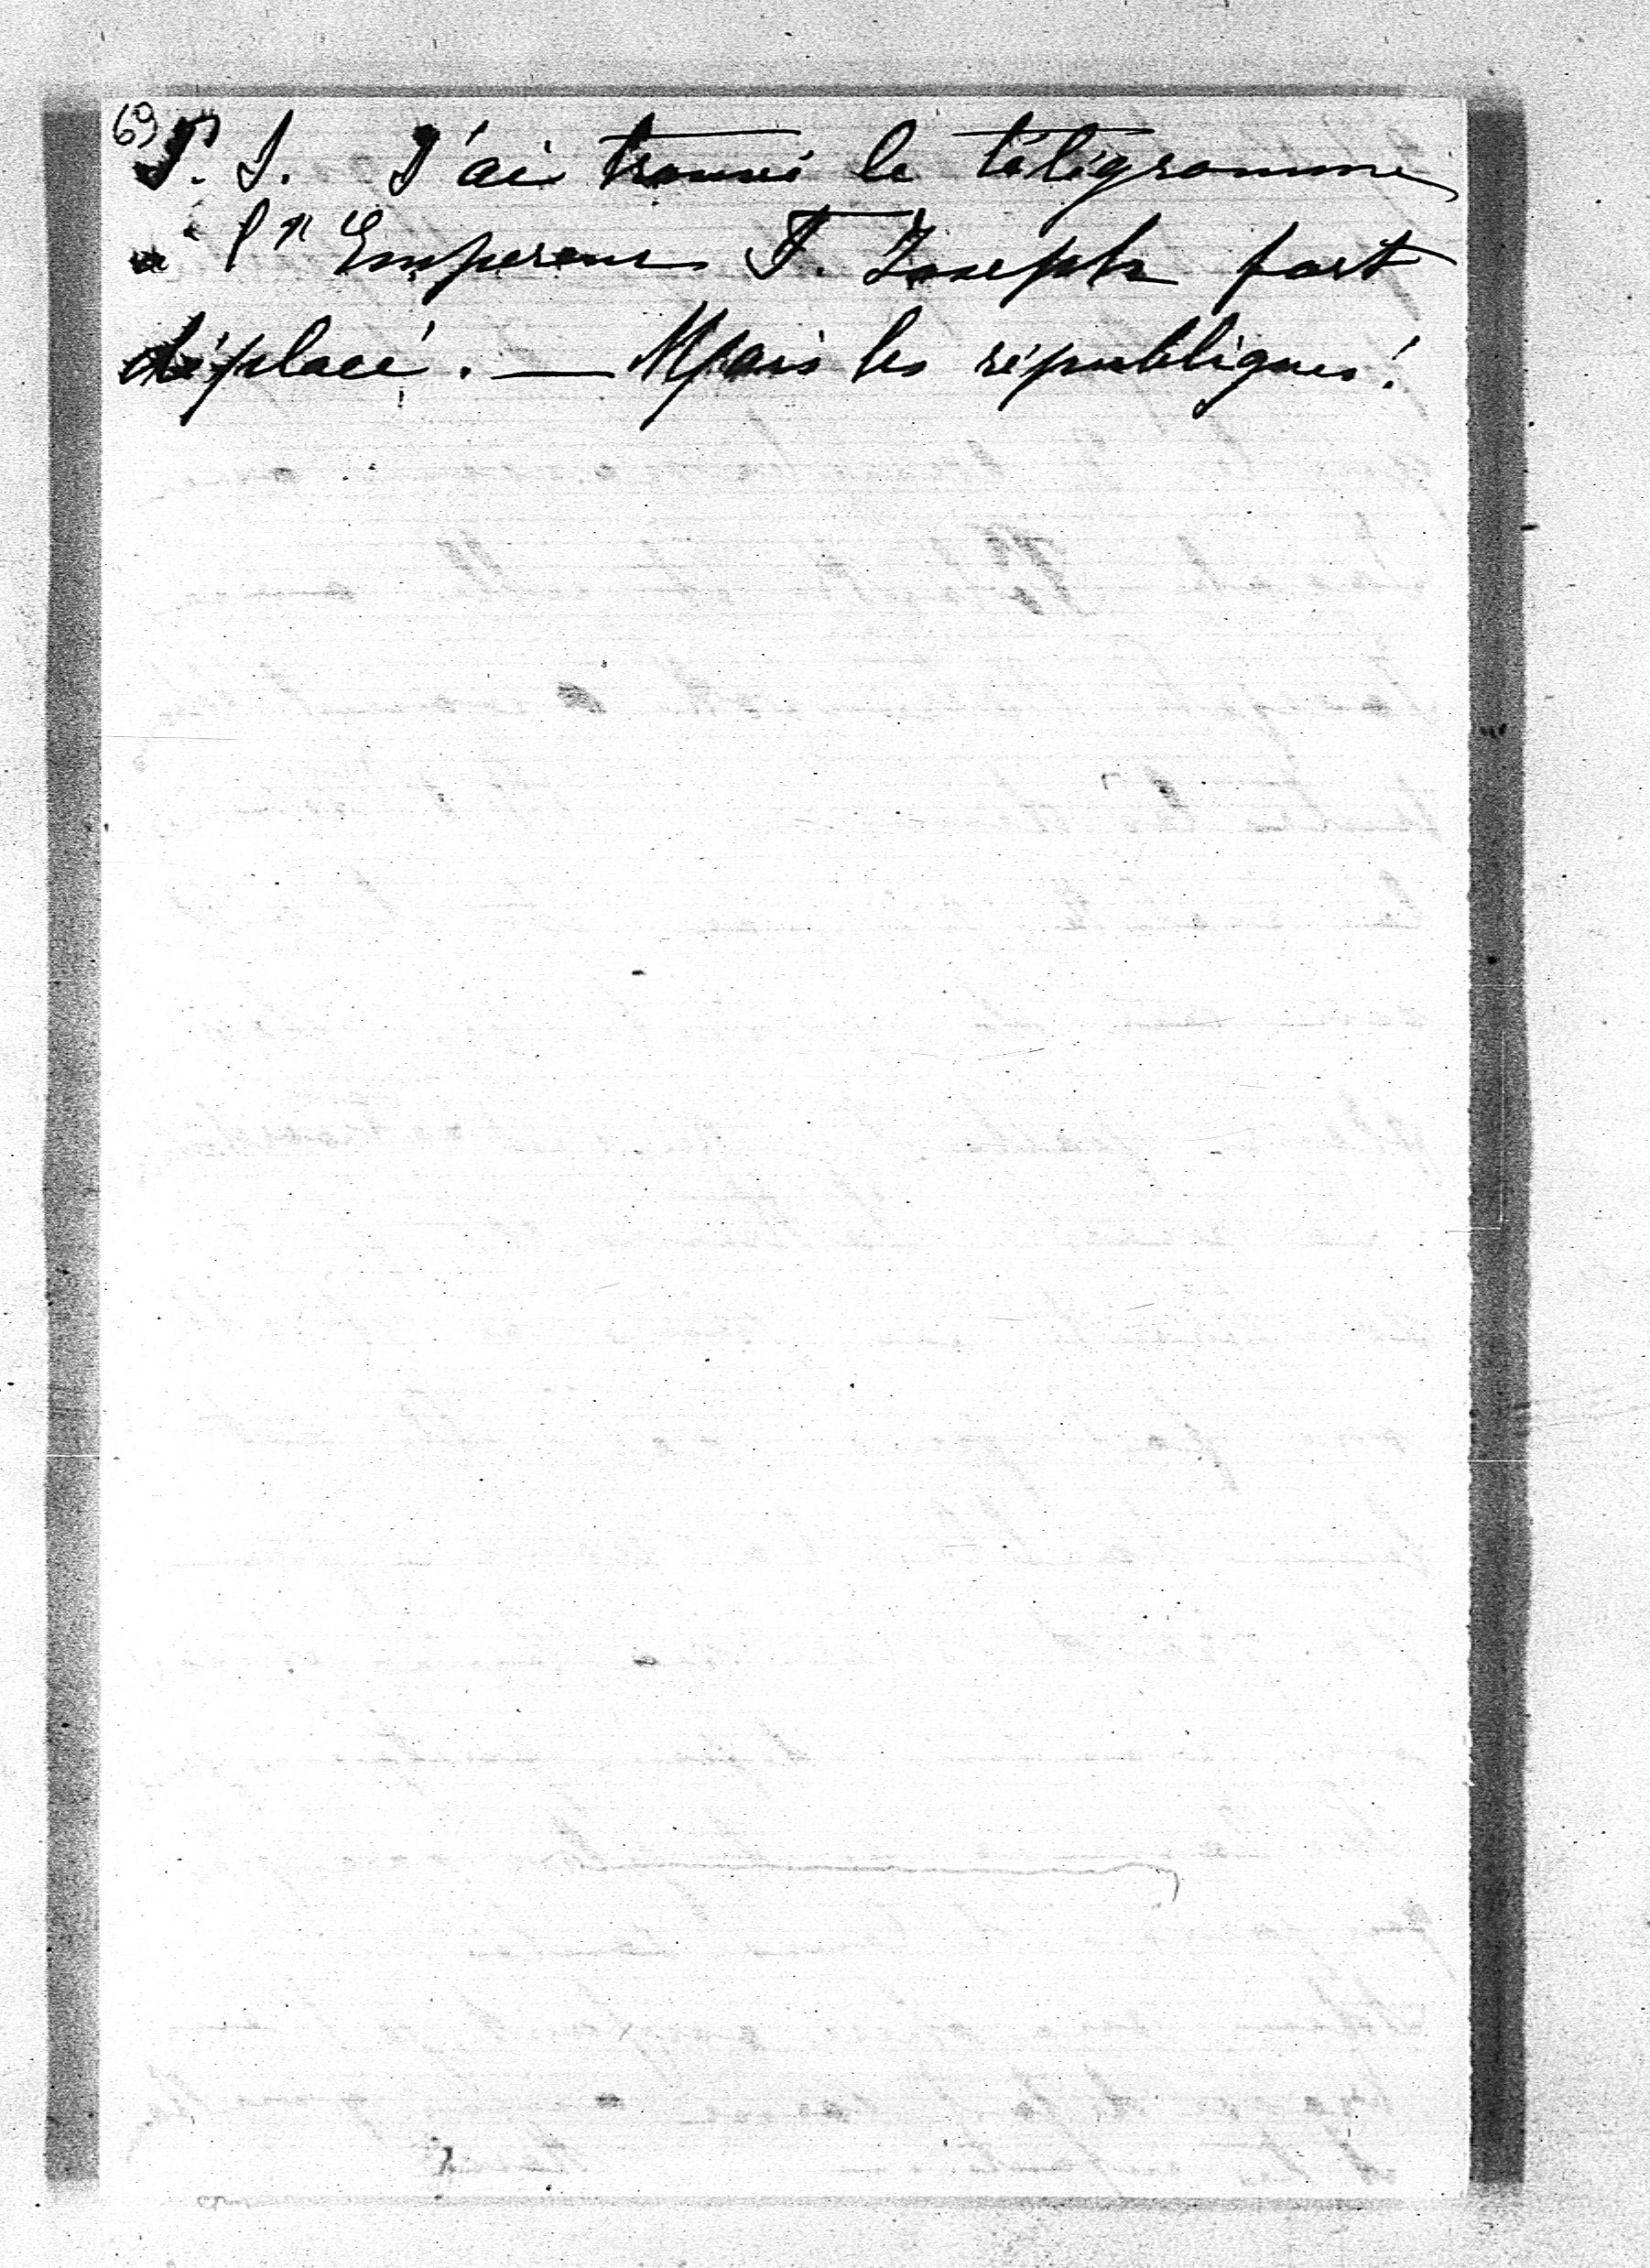 69
P. S. J'ai trouvé le télégramme
à l'" Empereur F. Joseph fort
déplacé. — Mais les républiques!